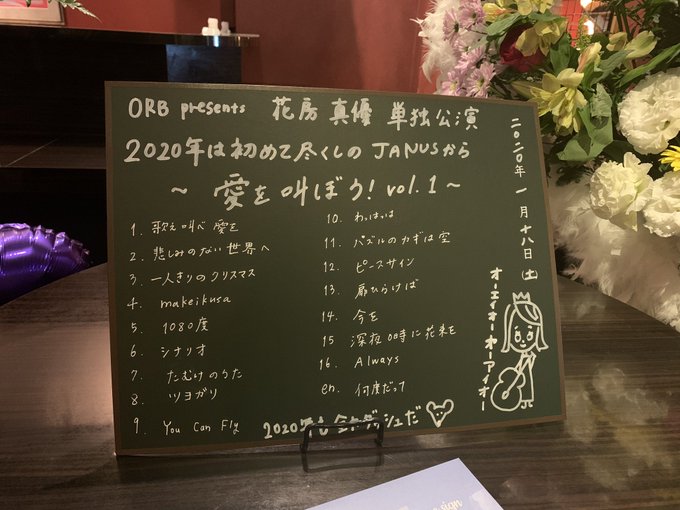 ORB presents 花房真優 単独公演
2020年は初めて尽くしのJANUSから
~ 愛を叫ぼう! vol.1 ~
1. 歌え叫べ愛を
2. 悲しみのない世界へ
3. 一人きりのクリスマス
4. makeikusa
5. 1080度
6. シナリオ
7. たむけのうた
8. ツヨガリ
9. You Can Fly
10. わっはっは
11. パズルのカギは空
12. ピースサイン
13. 扉ひらけば
14. 今を
15 深夜0時に花束を
16. Always
en. 何度だって
2020年も全力ダッシュだ
二〇二〇年一月十八日(土)
オーエイオーオーアイオー
sign